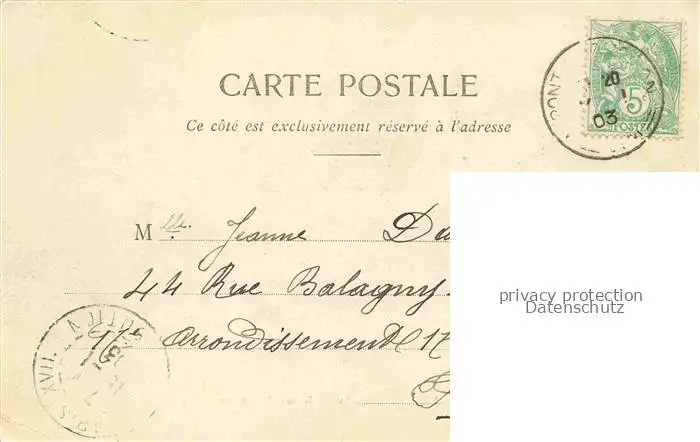 CARTE POSTALE
Ce côté est exclusivement réservé à l'adresse
20
03
5c
POSTES
PONT
Mlle. Jeanne
44 Rue Balagny
Arrondissement 17
privacy protection
Datenschutz
XVII.